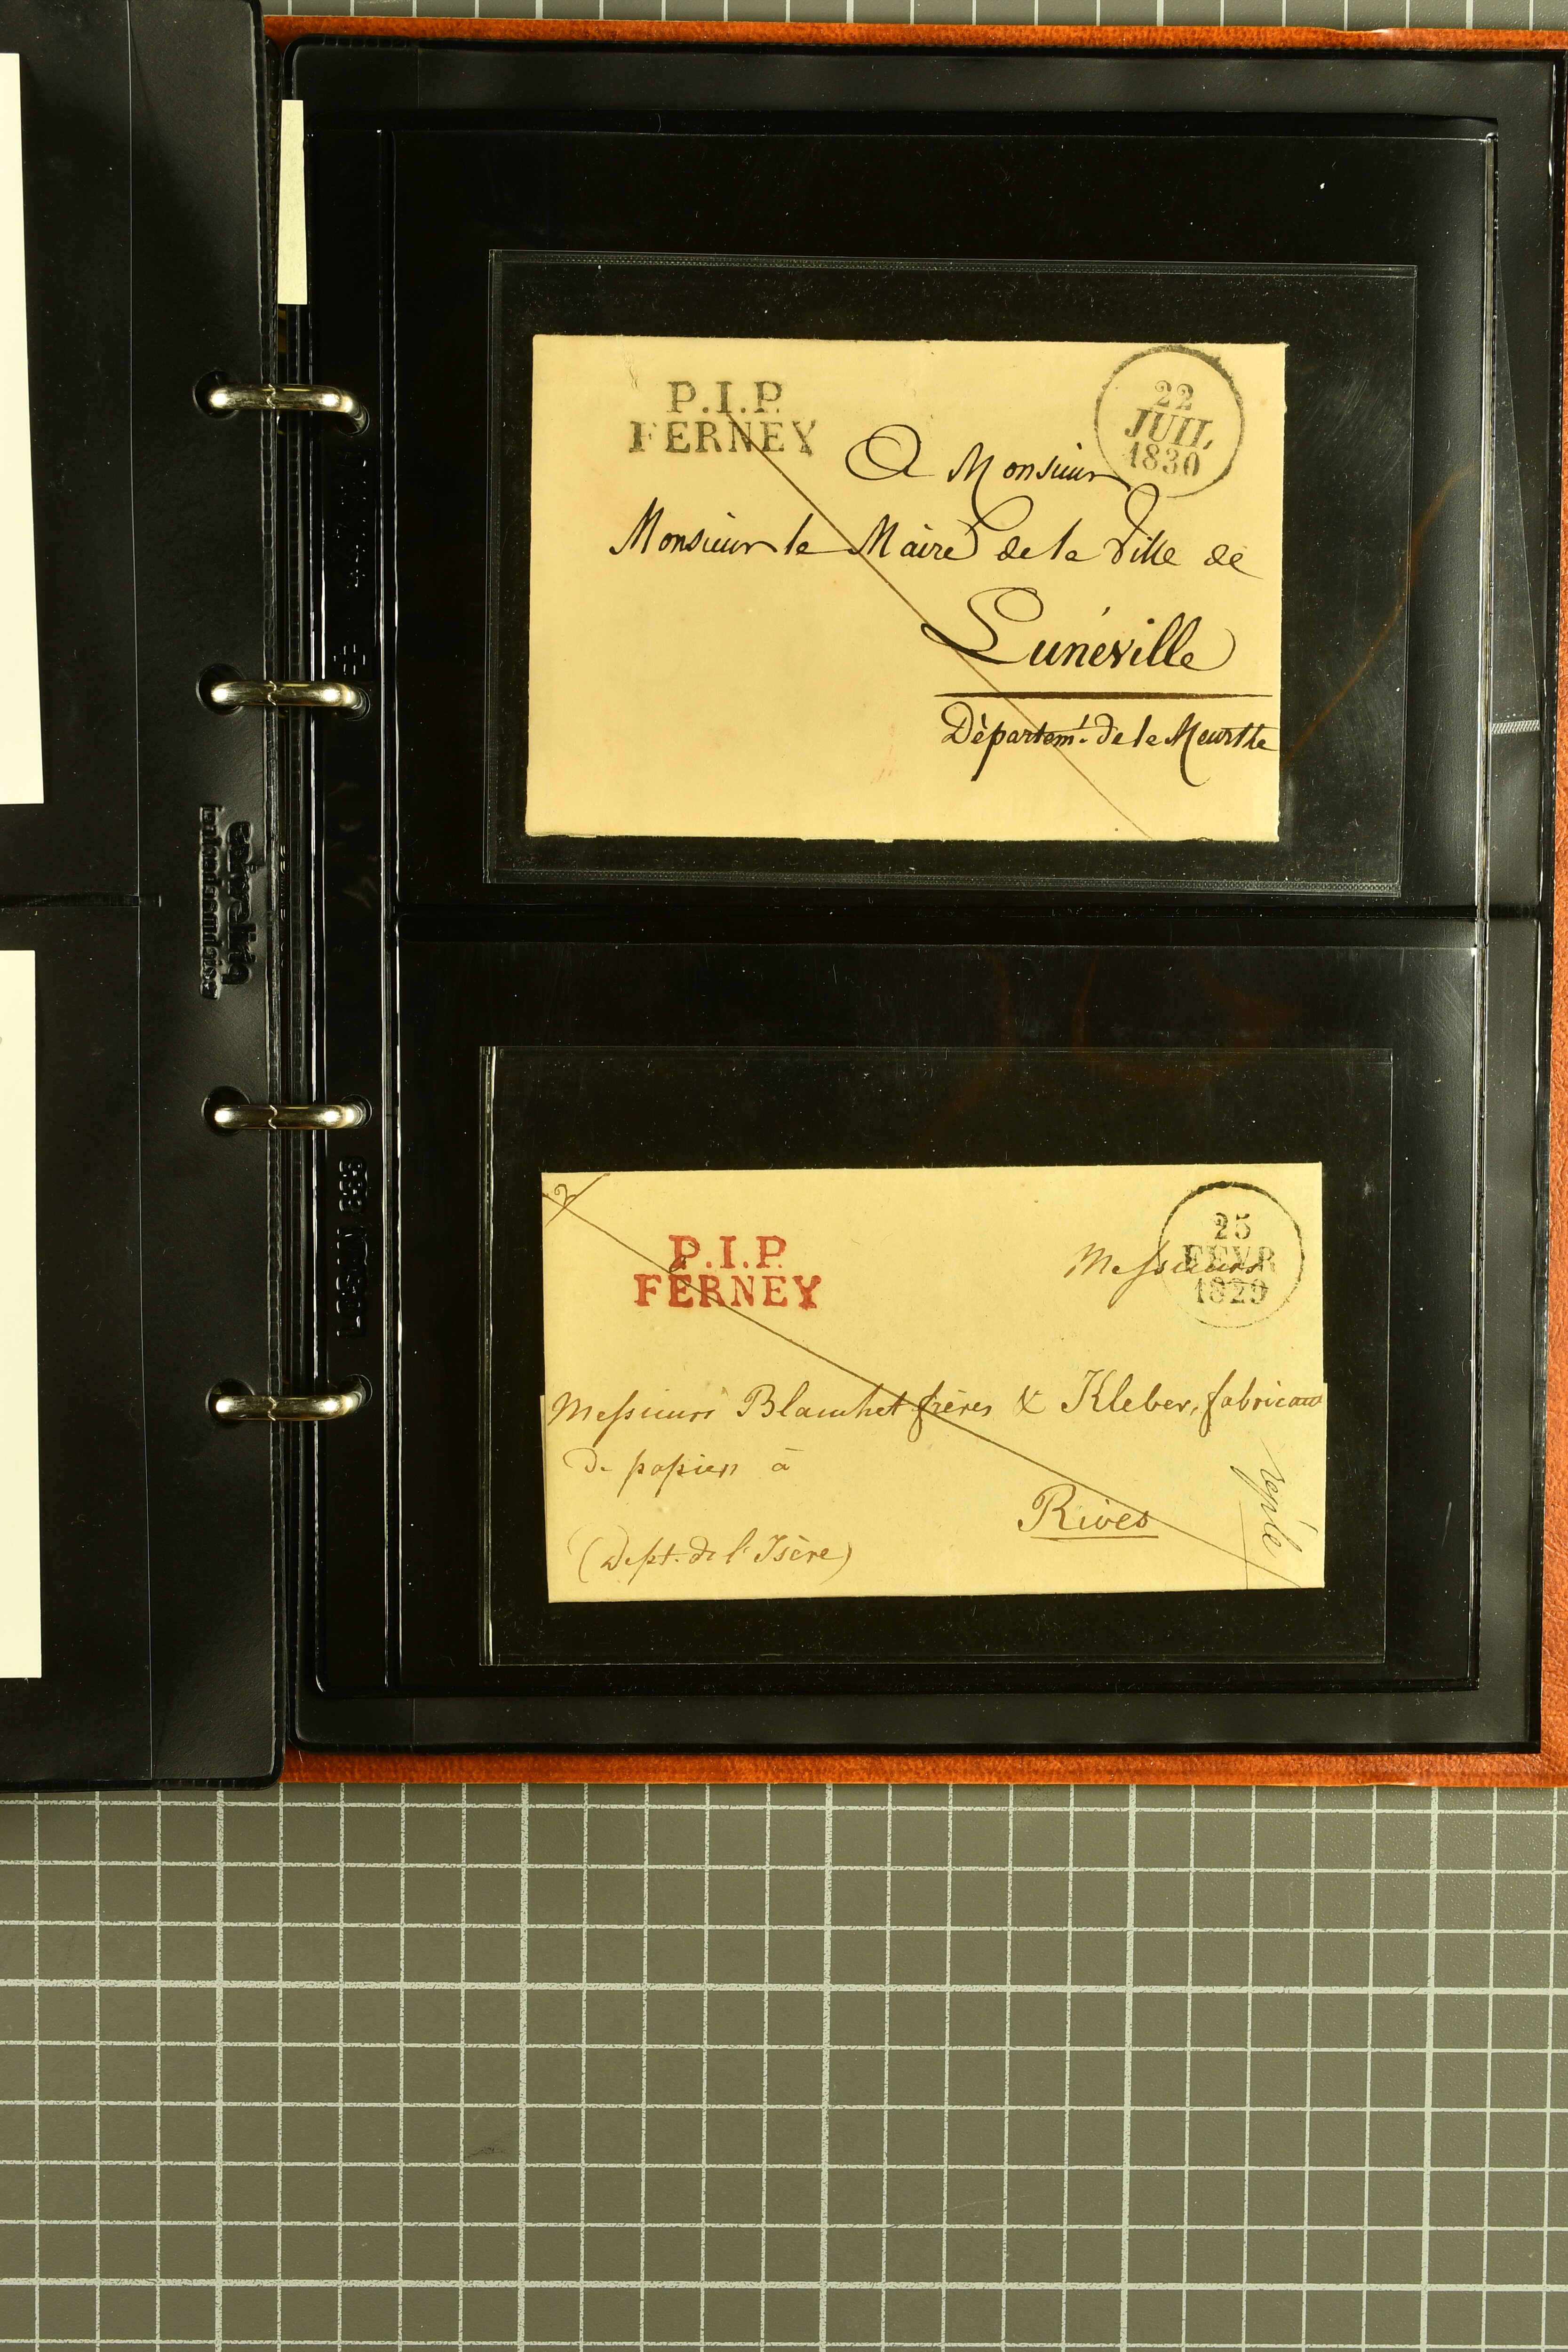 P.I.P.
FERNEY
22
JUIL
1830
A Monsieur
Monsieur le Maire de la Ville de
Lunéville
Départemt. de la Meurthe
P.I.P.
FERNEY
25
FEVR
1829
Messieurs
Messieurs Blanchet frères & Kleber, fabricans
de papiers à
Rives
(Dept. de l'Isère)